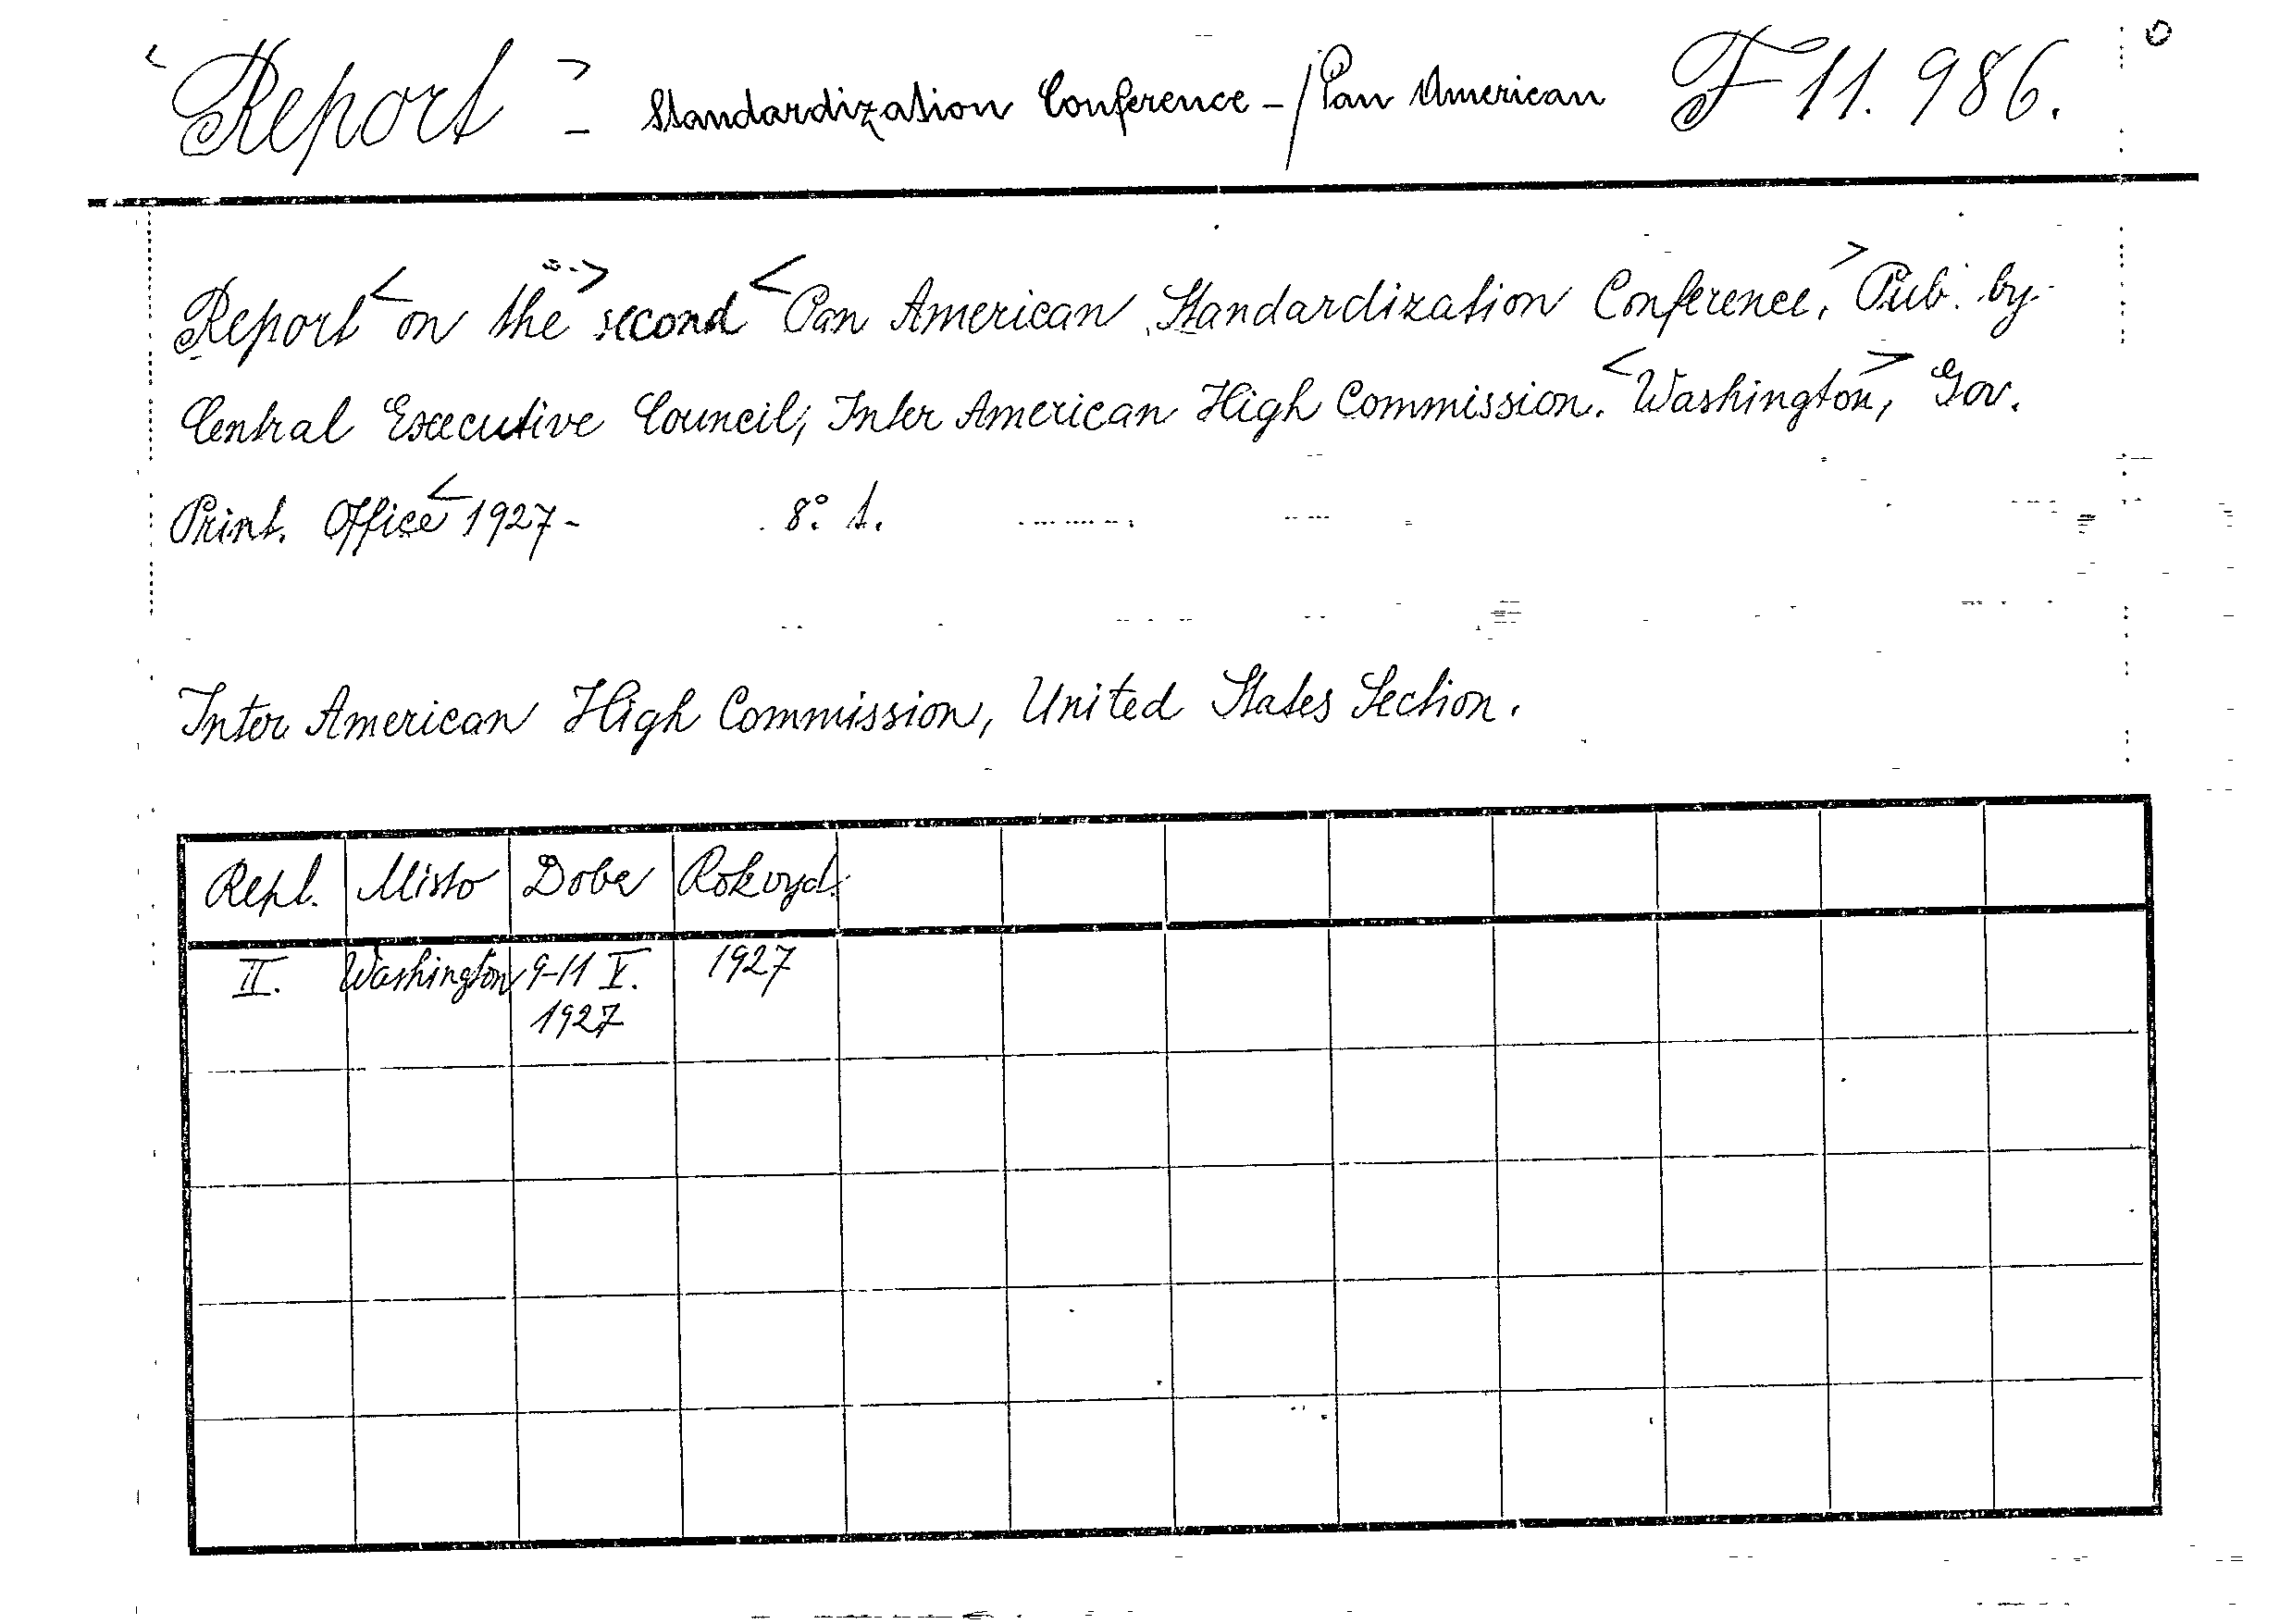 Report - Standardization Conference - / Pan American F 11.986.
Report on the second Pan American Standardization Conference. Pub. by
Central Executive Council, Inter American High Commission. Washington, Gov.
Print. Office 1927- 8°. 1.
Inter American High Commission, United States Section.
Repl. Místo Doba Rok vyd.
II. Washington 9-11 V. 1927
1927